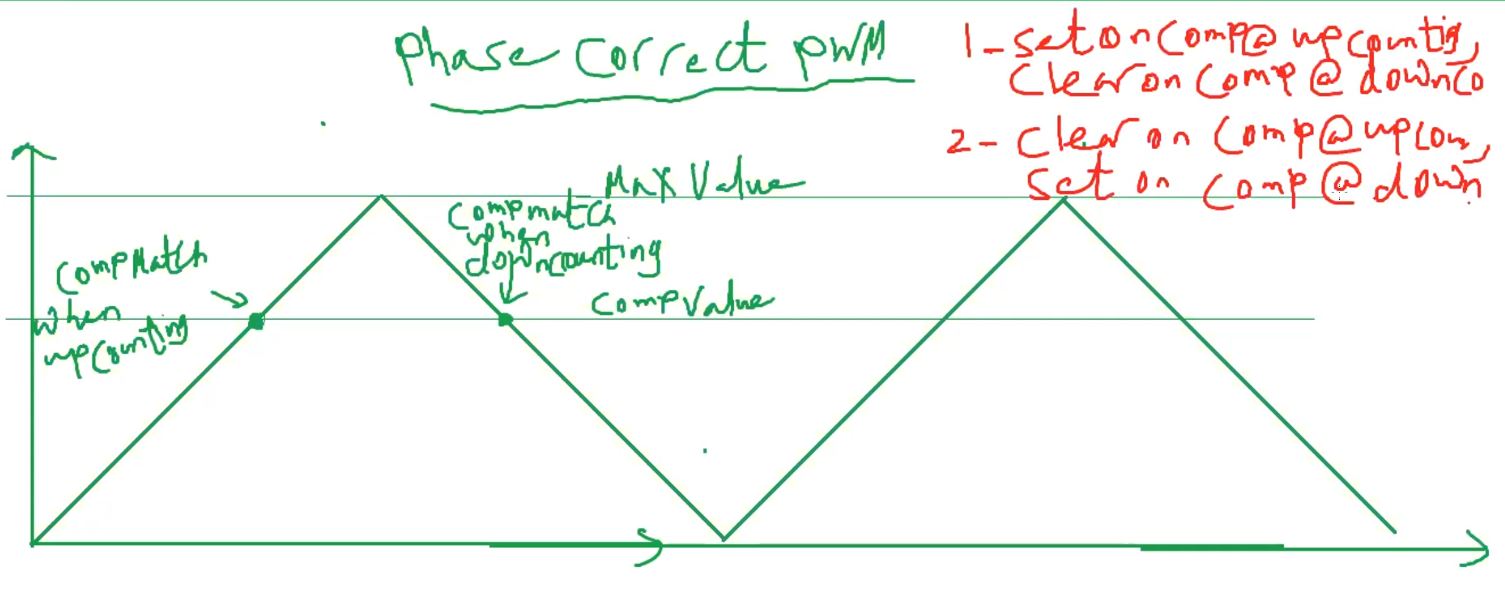 Phase Correct PWM
1- set on comp@ upcountig,
Clear on Comp @ downco
2- Clear on Comp@upcou,
set on Comp @ down
Max Value
Comp match
when
downcounting
Comp Match
when
upcounting
Comp Value